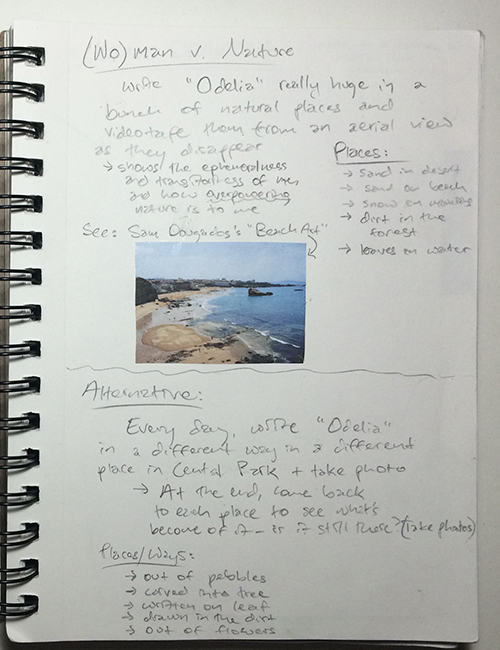 (Wo)man v. Nature
Write "Odelia" really huge in a
bunch of natural places and
videotape them from an aerial view
as they disappear
→ shows the ephemeralness
and transitoriness of me,
and how overpowering
nature is to me
Places:
→ Sand in desert
→ sand on beach
→ snow on mountains
→ dirt in the
forest
→ leaves on water
See: Sam Dougados's "Beach Art"
Alternative:
Every day, write "Odelia"
in a different way in a different
place in Central Park + take photo
→ At the end, come back
to each place to see what's
become of it – is it still there? (take photos)
Places/Ways:
→ out of pebbles
→ carved into tree
→ written on leaf
→ drawn in the dirt
→ out of flowers